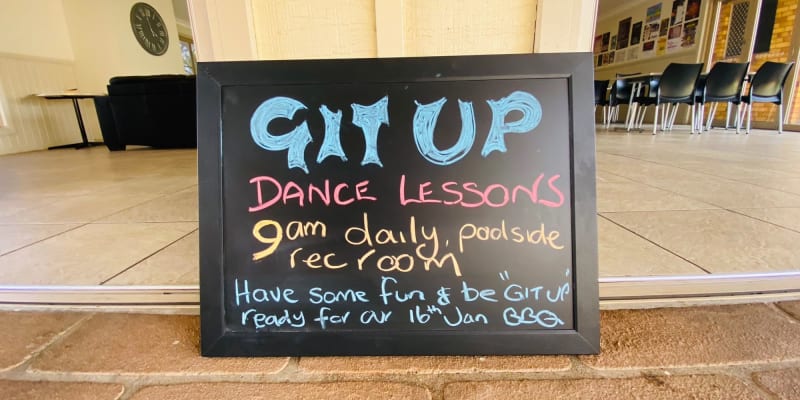 GIT UP
DANCE LESSONS
9am daily, poolside
rec room
Have some fun & be "GIT UP"
ready for our 16th Jan BBQ